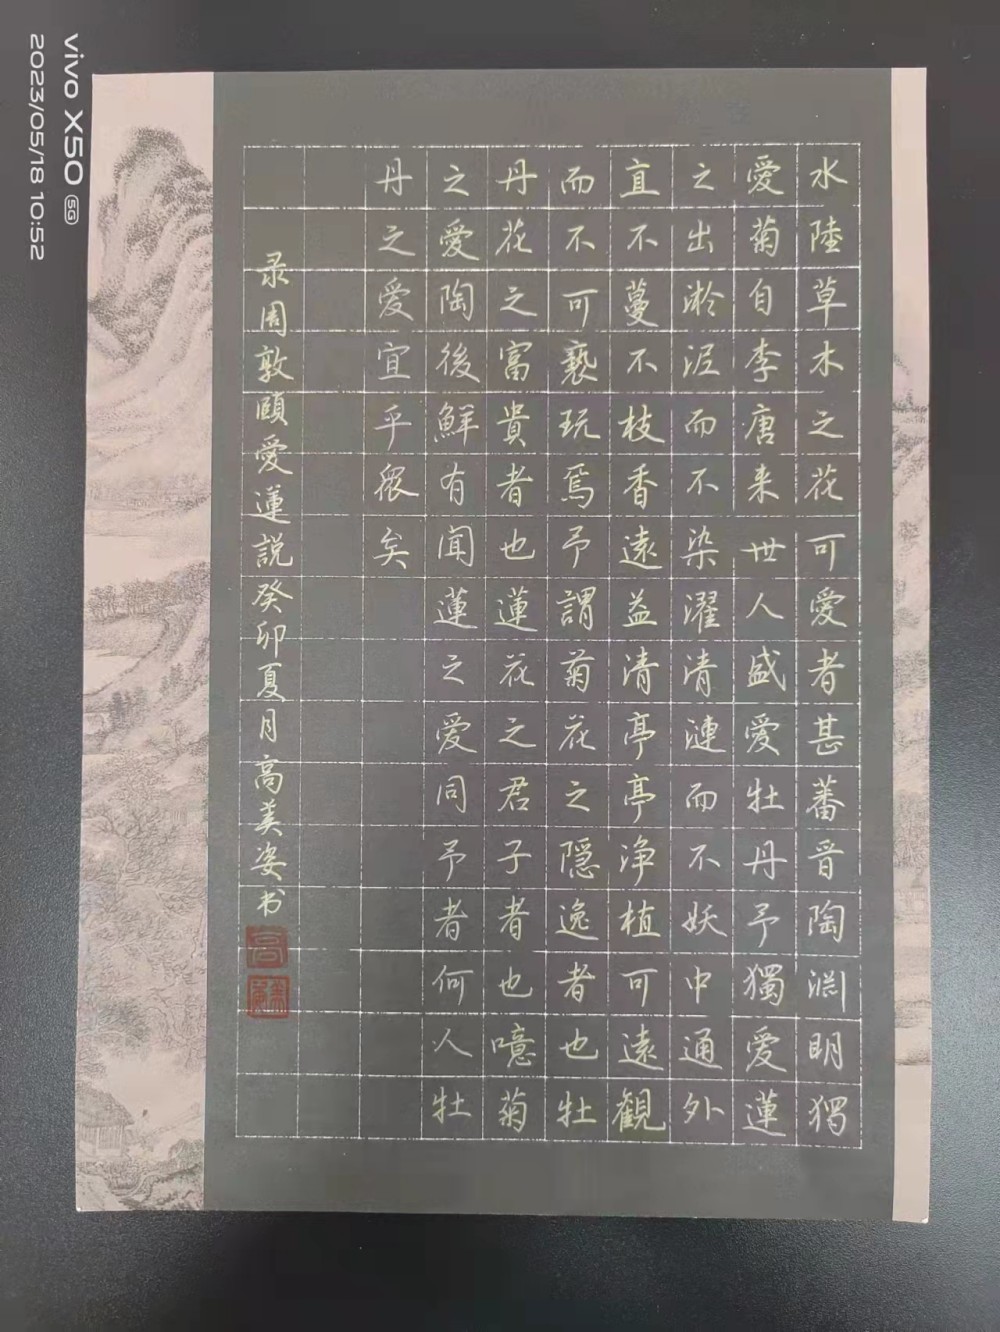 水陸草木之花可愛者甚蕃晋陶淵明獨
愛菊自李唐来世人盛愛牡丹予獨愛蓮
之出淤泥而不染濯清漣而不妖中通外
直不蔓不枝香遠益清亭亭净植可遠観
而不可褻玩焉予謂菊花之隠逸者也牡
丹花之富貴者也蓮花之君子者也噫菊
之愛陶後鮮有聞蓮之愛同予者何人牡
丹之愛宜乎衆矣
录周敦頤愛蓮説癸卯夏月高美姿书
vivo X50 5G
2023/05/18 10:52